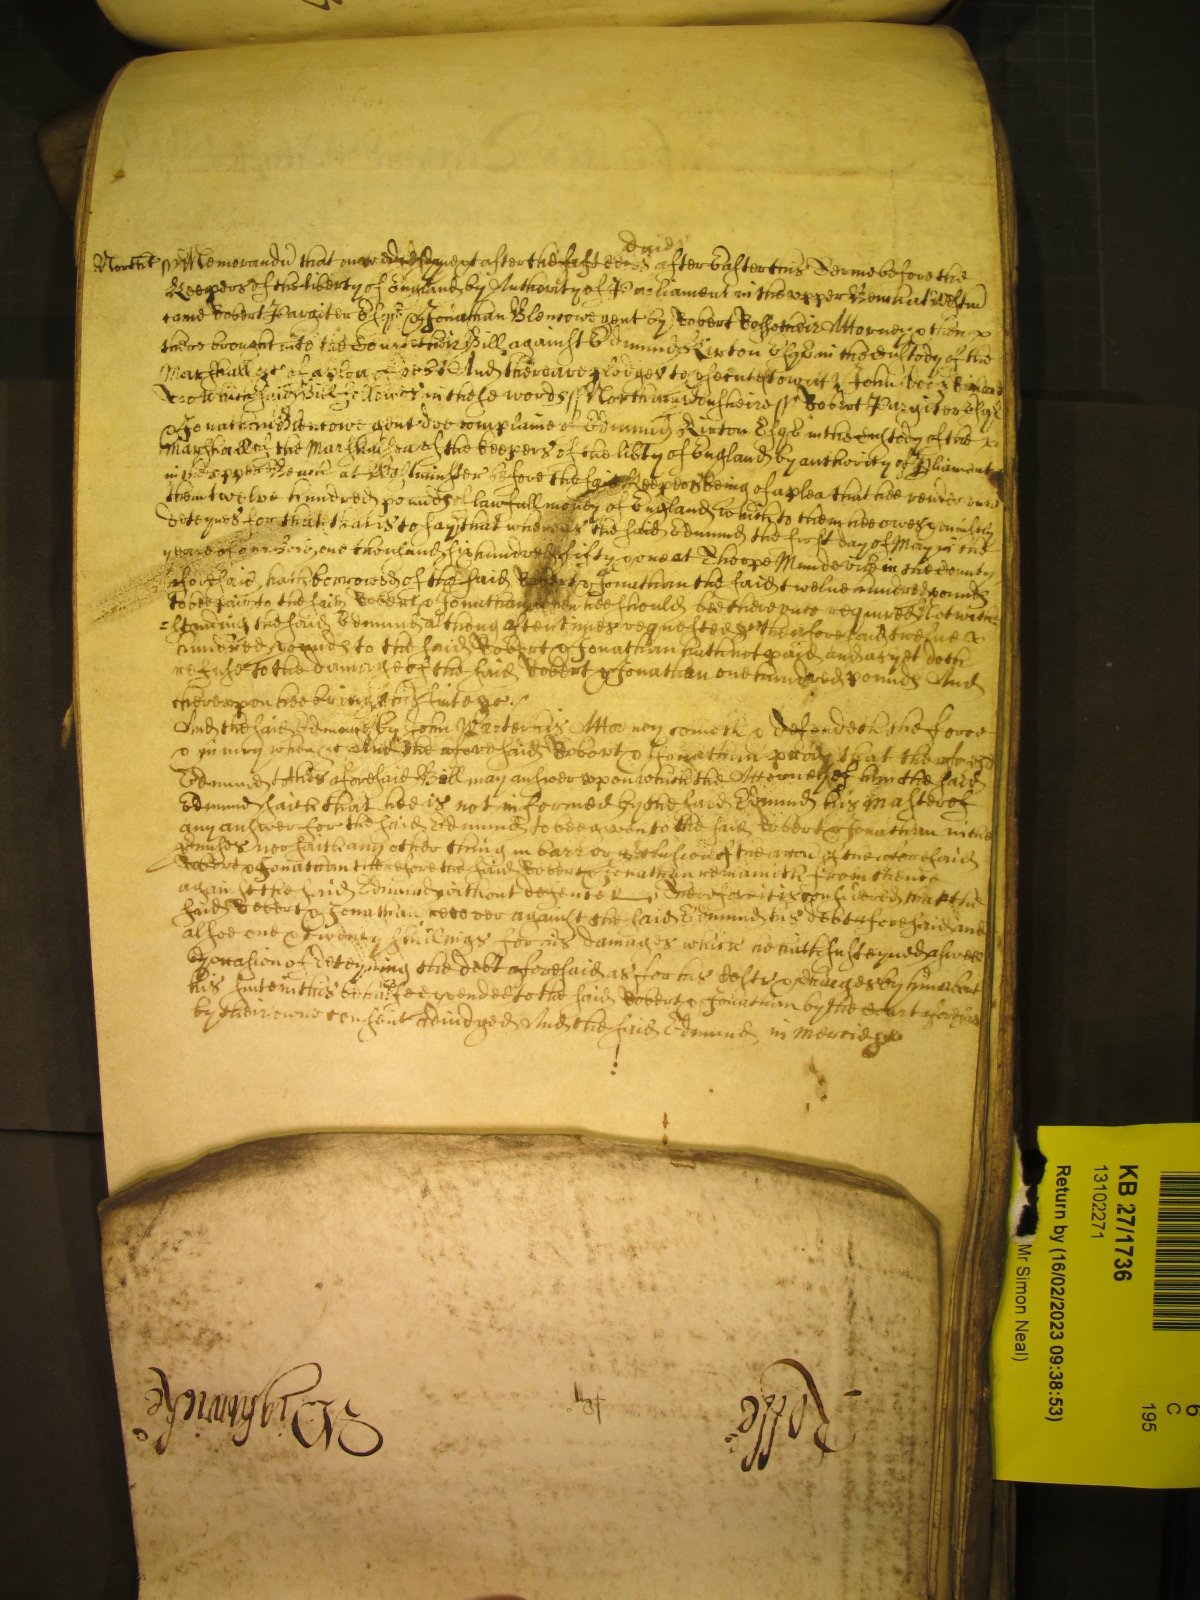 Northt ss Memorandu that on next after the eight daies after Easter this Terme before the
Keepers of the liberty of England by Authority of Parliament in the upper Bench at Westmr
came Robert Pargiter Esqr & Jonathan Blencowe gent by Robert Rosse their Attorney & then &
there brought into the Court their Bill against Edmund Kirton Esqr in the custody of the
Marshall &c of a plea of debt And there are pledges to prosecute to wit John Doe & Richard
Roe which said Bill followes in these words ss Northamptonsheire ss Robert Pargiter Esqr
& Jonathan Blencowe gent doe complaine of Edmund Kirton Esqr in the custody of the
Marshall of the Marshalsea of the keepers of the libty of England by authority of Pliament
in the upper Bench at Westminster before the said Keepers being of a plea that hee render unto
them twelve hundred pounds of lawfull money of England which to them hee owes & uniustly
deteynes for that that is to say that whereas the said Edmund the first day of May in the
yeare of our Lord one thousand six hundred fifty & one at Thorpe Mundevile in the County
aforesaid hath borrowed of the said Robert & Jonathan the said twelve hundred pounds
to bee paid to the said Robert & Jonathan when hee should bee thereunto required Notwith
=standing the said Edmund although often times requested the aforesaid twelve
hundred pounds to the said Robert & Jonathan hath not paid and as yet doth
refuse to the damage of the said Robert & Jonathan one hundred pounds And
thereupon hee brings this suite &c
And the said Edmund by John Warter his Attorney cometh & defendeth the force
& iniury when &c And the aforesaid Robert & Jonathan pray that the aforesd
Edmund to this aforesaid Bill may answer upon which the Attorney of him the said
Edmund saith that hee is not informed by the said Edmund his Master of
any answer for the said Edmund to bee given to the said Robert & Jonathan in the
pmisses nor saith any other thing in barr or of the accon of the aforesaid
Robert & Jonathan therefore the said Robert & Jonathan remaineth from thence
against the said Edmund without defence Therefore it is considered that the
said Robert & Jonathan recover against the said Edmund his debt aforesaid and
alsoe one & twenty shillings for his damages which he hath susteyned aswell
by occasion of deteyning the debt aforesaid as for his Costs & charges by him about
his suite in this behalfe expended to the said Robert & Jonathan by the Court aforesaid
by their owne consent adiudged And the said Edmund in mercie &c
Wightwicke
Rosse
KB 27/1736
13102271
Return by (16/02/2023 09:38:53)
Mr Simon Neal)
6
C
195